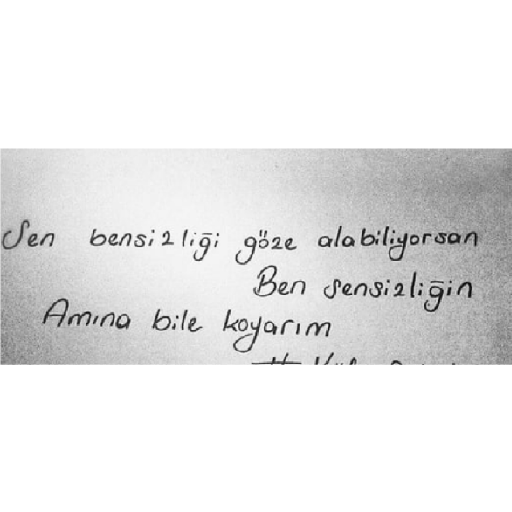 Sen bensizliği göze alabiliyorsan
Ben sensizliğin
Amına bile koyarım